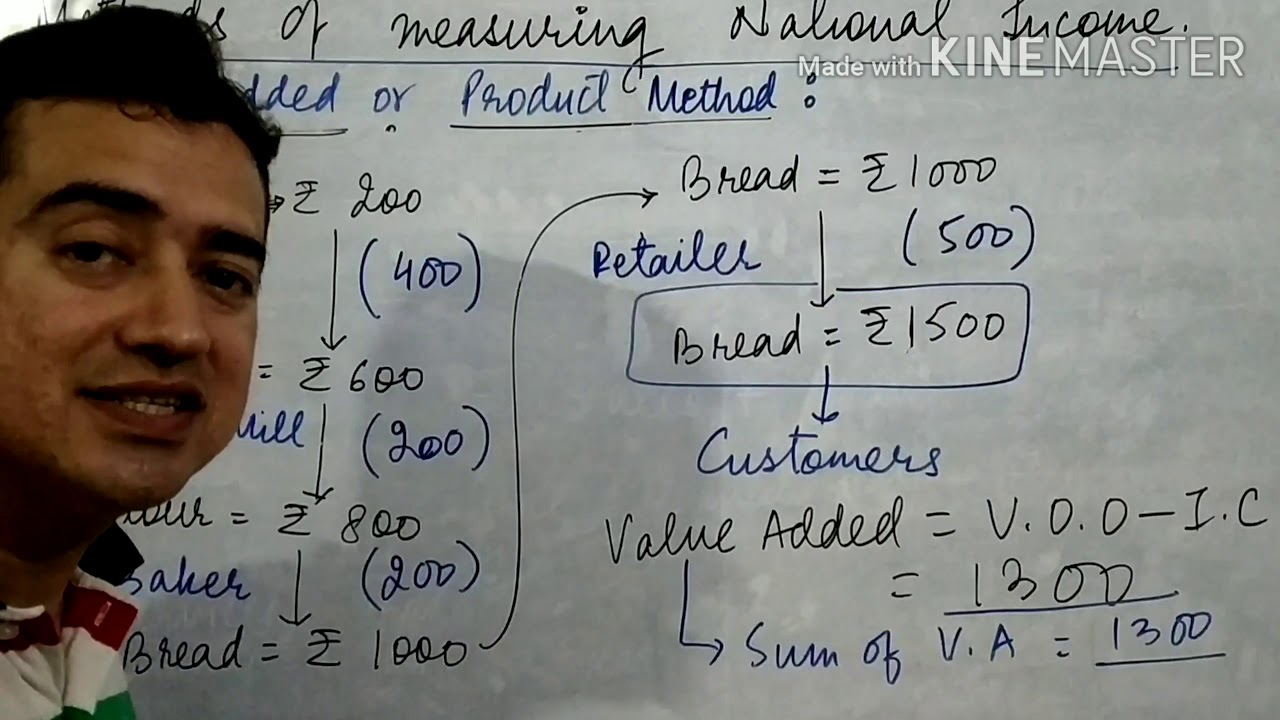 Of measuring National Income.
Made with KINEMASTER
or Product Method :
₹ 200
(400)
= ₹ 600
(200)
= ₹ 800
Baker (200)
Bread = ₹ 1000
Bread = ₹ 1000
Retailer (500)
Bread = ₹ 1500
Customers
Value Added = V.O.O - I.C
= 1300
Sum of V.A = 1300